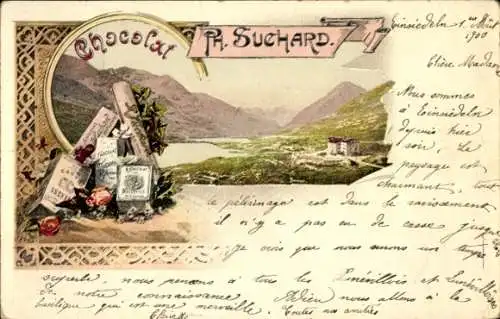 Chocolat
PH. SUCHARD.
Einsiedeln 1er Août
1900
Chère Madame
Nous sommes
à Einsiedeln
depuis hier
soir. Le
paysage est
charmant, tout
le pélerinage est dans le ravissement
il n'y a pas eu de casse jusqu'
Je crois que nous aurons un temps
superbe, nous pensons à tous les et
de notre connaissance. Adieu nous allons à la
basilique qui est une merveille. Toutes nos amitiés